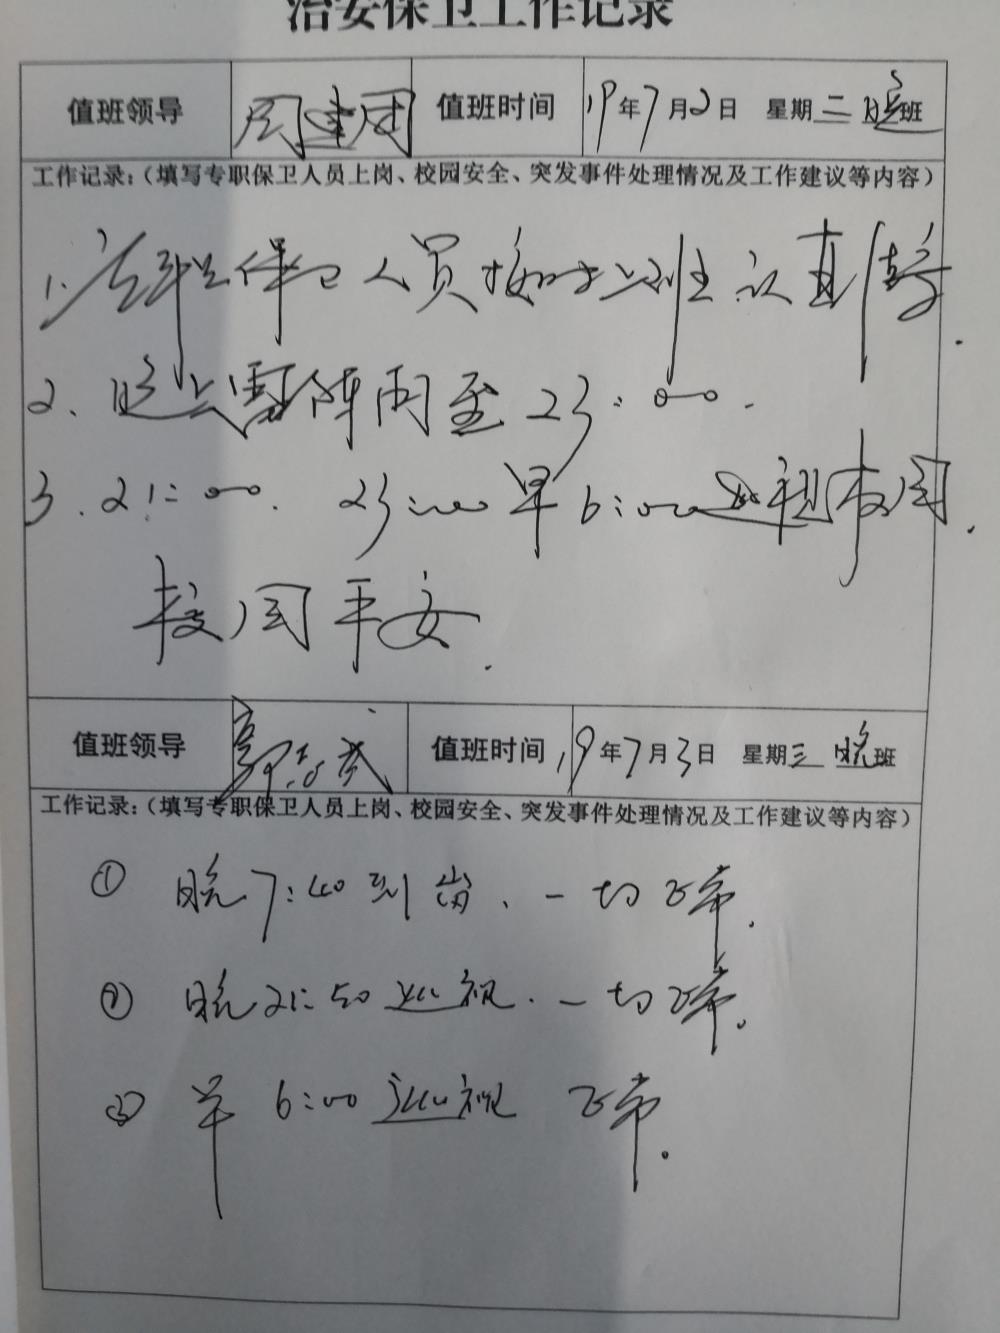 治安保卫工作记录
值班领导 周建国 值班时间 19年7月2日 星期二 晚班
工作记录:（填写专职保卫人员上岗、校园安全、突发事件处理情况及工作建议等内容）
1. 专职保卫人员按时上班认真值守.
2. 晚上雷阵雨至23:00.
3. 21:00. 23:00 早6:00巡视校园.
校园平安.
值班领导 郭志武 值班时间 19年7月3日 星期三 晚班
工作记录:（填写专职保卫人员上岗、校园安全、突发事件处理情况及工作建议等内容）
① 晚7:40到岗. 一切正常.
② 晚21:50巡视. 一切正常.
③ 早6:00巡视 正常.